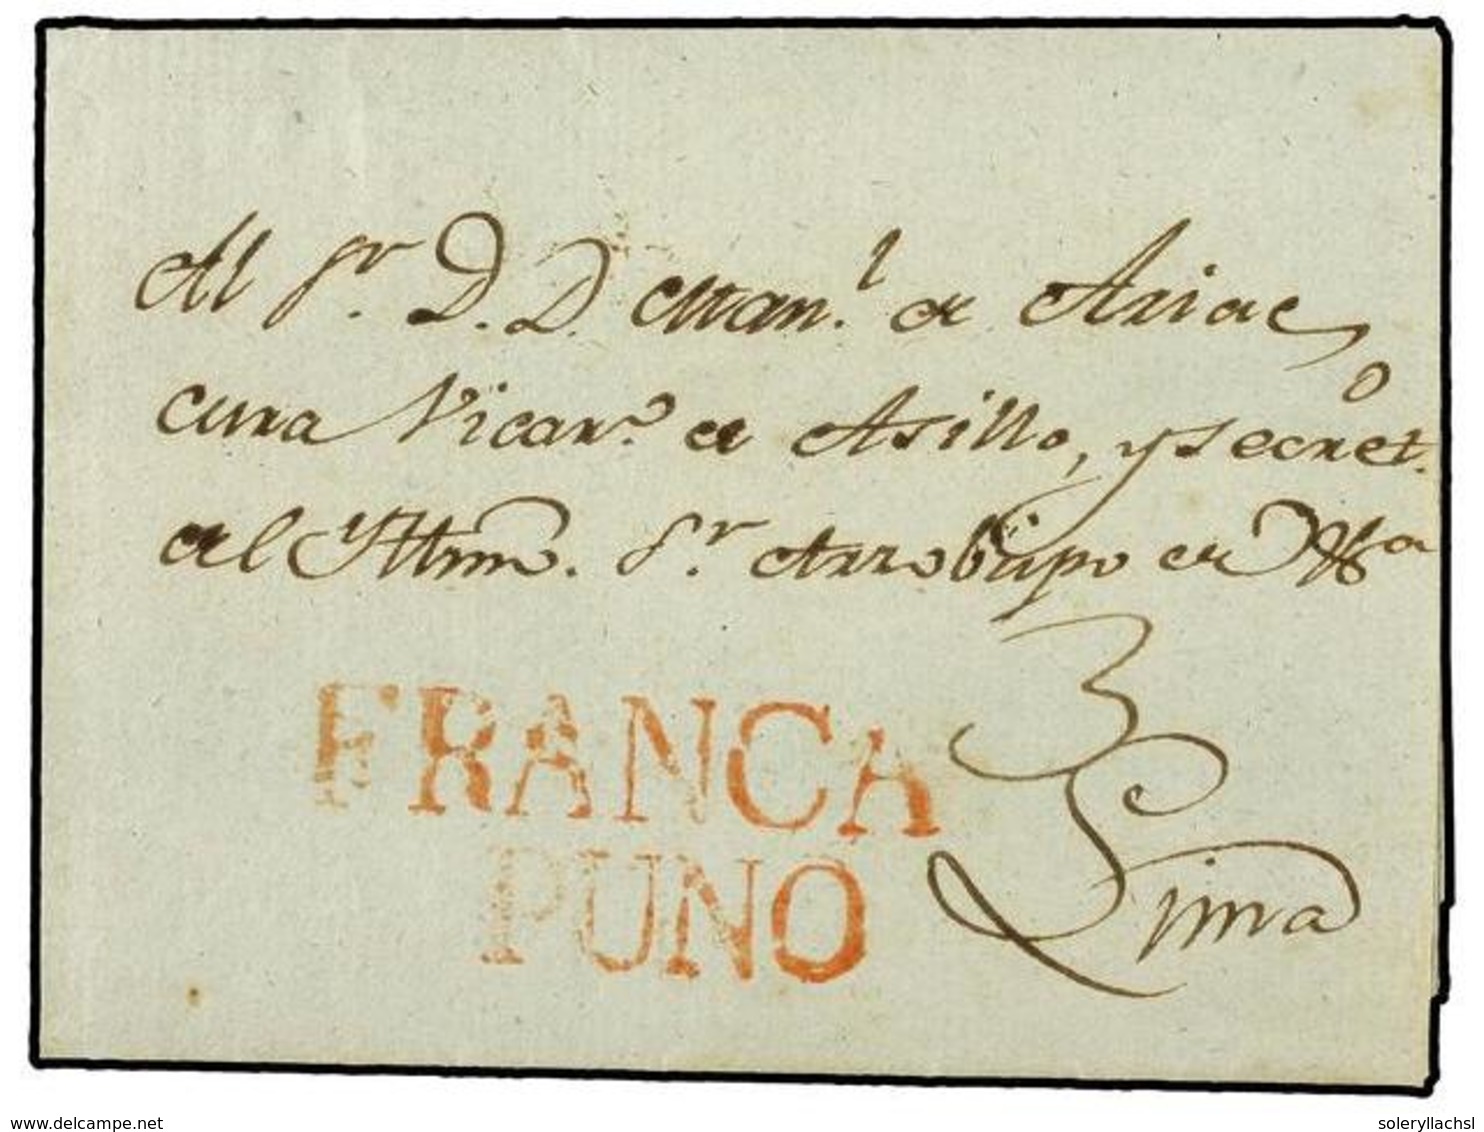 Al Sr. D. D. Man.l de Ariae
cura Vicar.o de Asillo, y Secret.o
del Yttmo. Sr. Arzobispo de
FRANCA
PUNO
3
Lima
delcampe.net
soleryllachsl